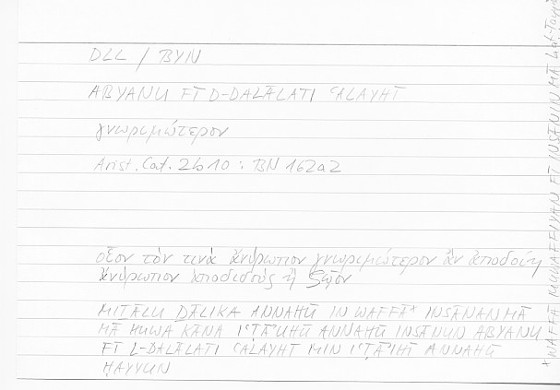 DLL / BYN
ABYANU FĪ D-DALĀLATI ʿALAYHĪ
γνωριμώτερον
Arist. Cat. 2b10 : BN 162a2
οἷον τὸν τινὰ ἄνθρωπον γνωριμώτερον ἂν ἀποδοίη
ἄνθρωπον ἀποδιδοὺς ἢ ζῷον
MIṮĀLU ḎĀLIKA ANNAHŪ IN WAFFĀ* INSĀNAN MĀ
MĀ HUWA KĀNA IʿṬĀʾUHŪ ANNAHŪ INSĀNUN ABYANU
FĪ L-DALĀLATI ʿALAYHĪ MIN IʿṬĀʾIHĪ ANNAHŪ
ḤAYYUN
FĪ INSĀNIN MĀ